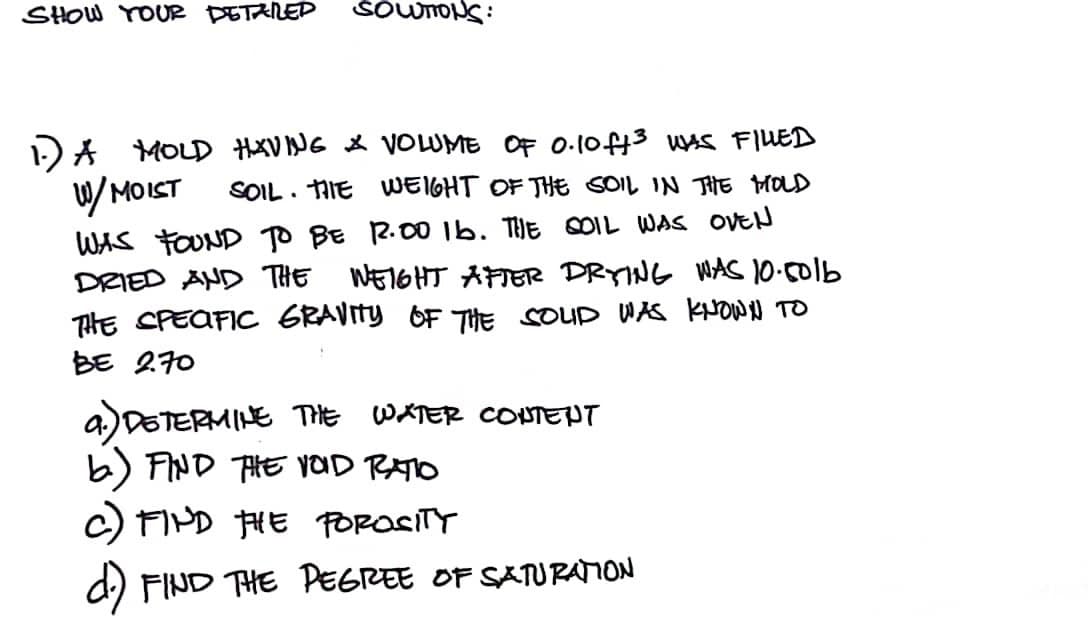 SHOW YOUR DETAILED SOLUTIONS:
1.) A MOLD HAVING A VOLUME OF 0.10 ft3 WAS FILLED
W/ MOIST SOIL. THE WEIGHT OF THE SOIL IN THE MOLD
WAS FOUND TO BE 12.00 lb. THE SOIL WAS OVEN
DRIED AND THE WEIGHT AFTER DRYING WAS 10.50 lb
THE SPECIFIC GRAVITY OF THE SOLID WAS KNOWN TO
BE 2.70
a.) DETERMINE THE WATER CONTENT
b) FIND THE VOID RATIO
c) FIND THE POROSITY
d.) FIND THE DEGREE OF SATURATION